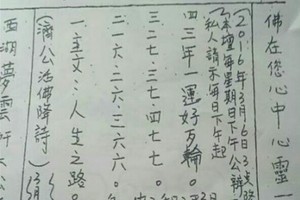 佛在您心中心靈
(2016年3月16日3
本壇每星期日下午公辦
私人請示每日下午起
四三年一運好輪。
三二.七三.七四.七七。
二一六.二六.三六六。
一主文:人生之路。
(濟公活佛降詩)
西湖夢雲軒